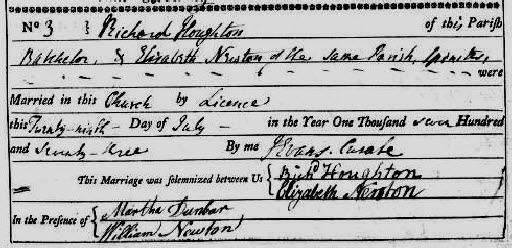 No 3 } Richard Houghton of this Parish
Batchelor, & Elizabeth Newton of the same Parish, Spinster,
were
Married in this Church by Licence
this Twenty-ninth - Day of July - in the Year One Thousand seven Hundred
and Seventy-three By me J Evans. Curate
This Marriage was solemnized between Us { Richd Houghton
Elizabeth Newton
In the Presence of { Martha Dunbar
William Newton